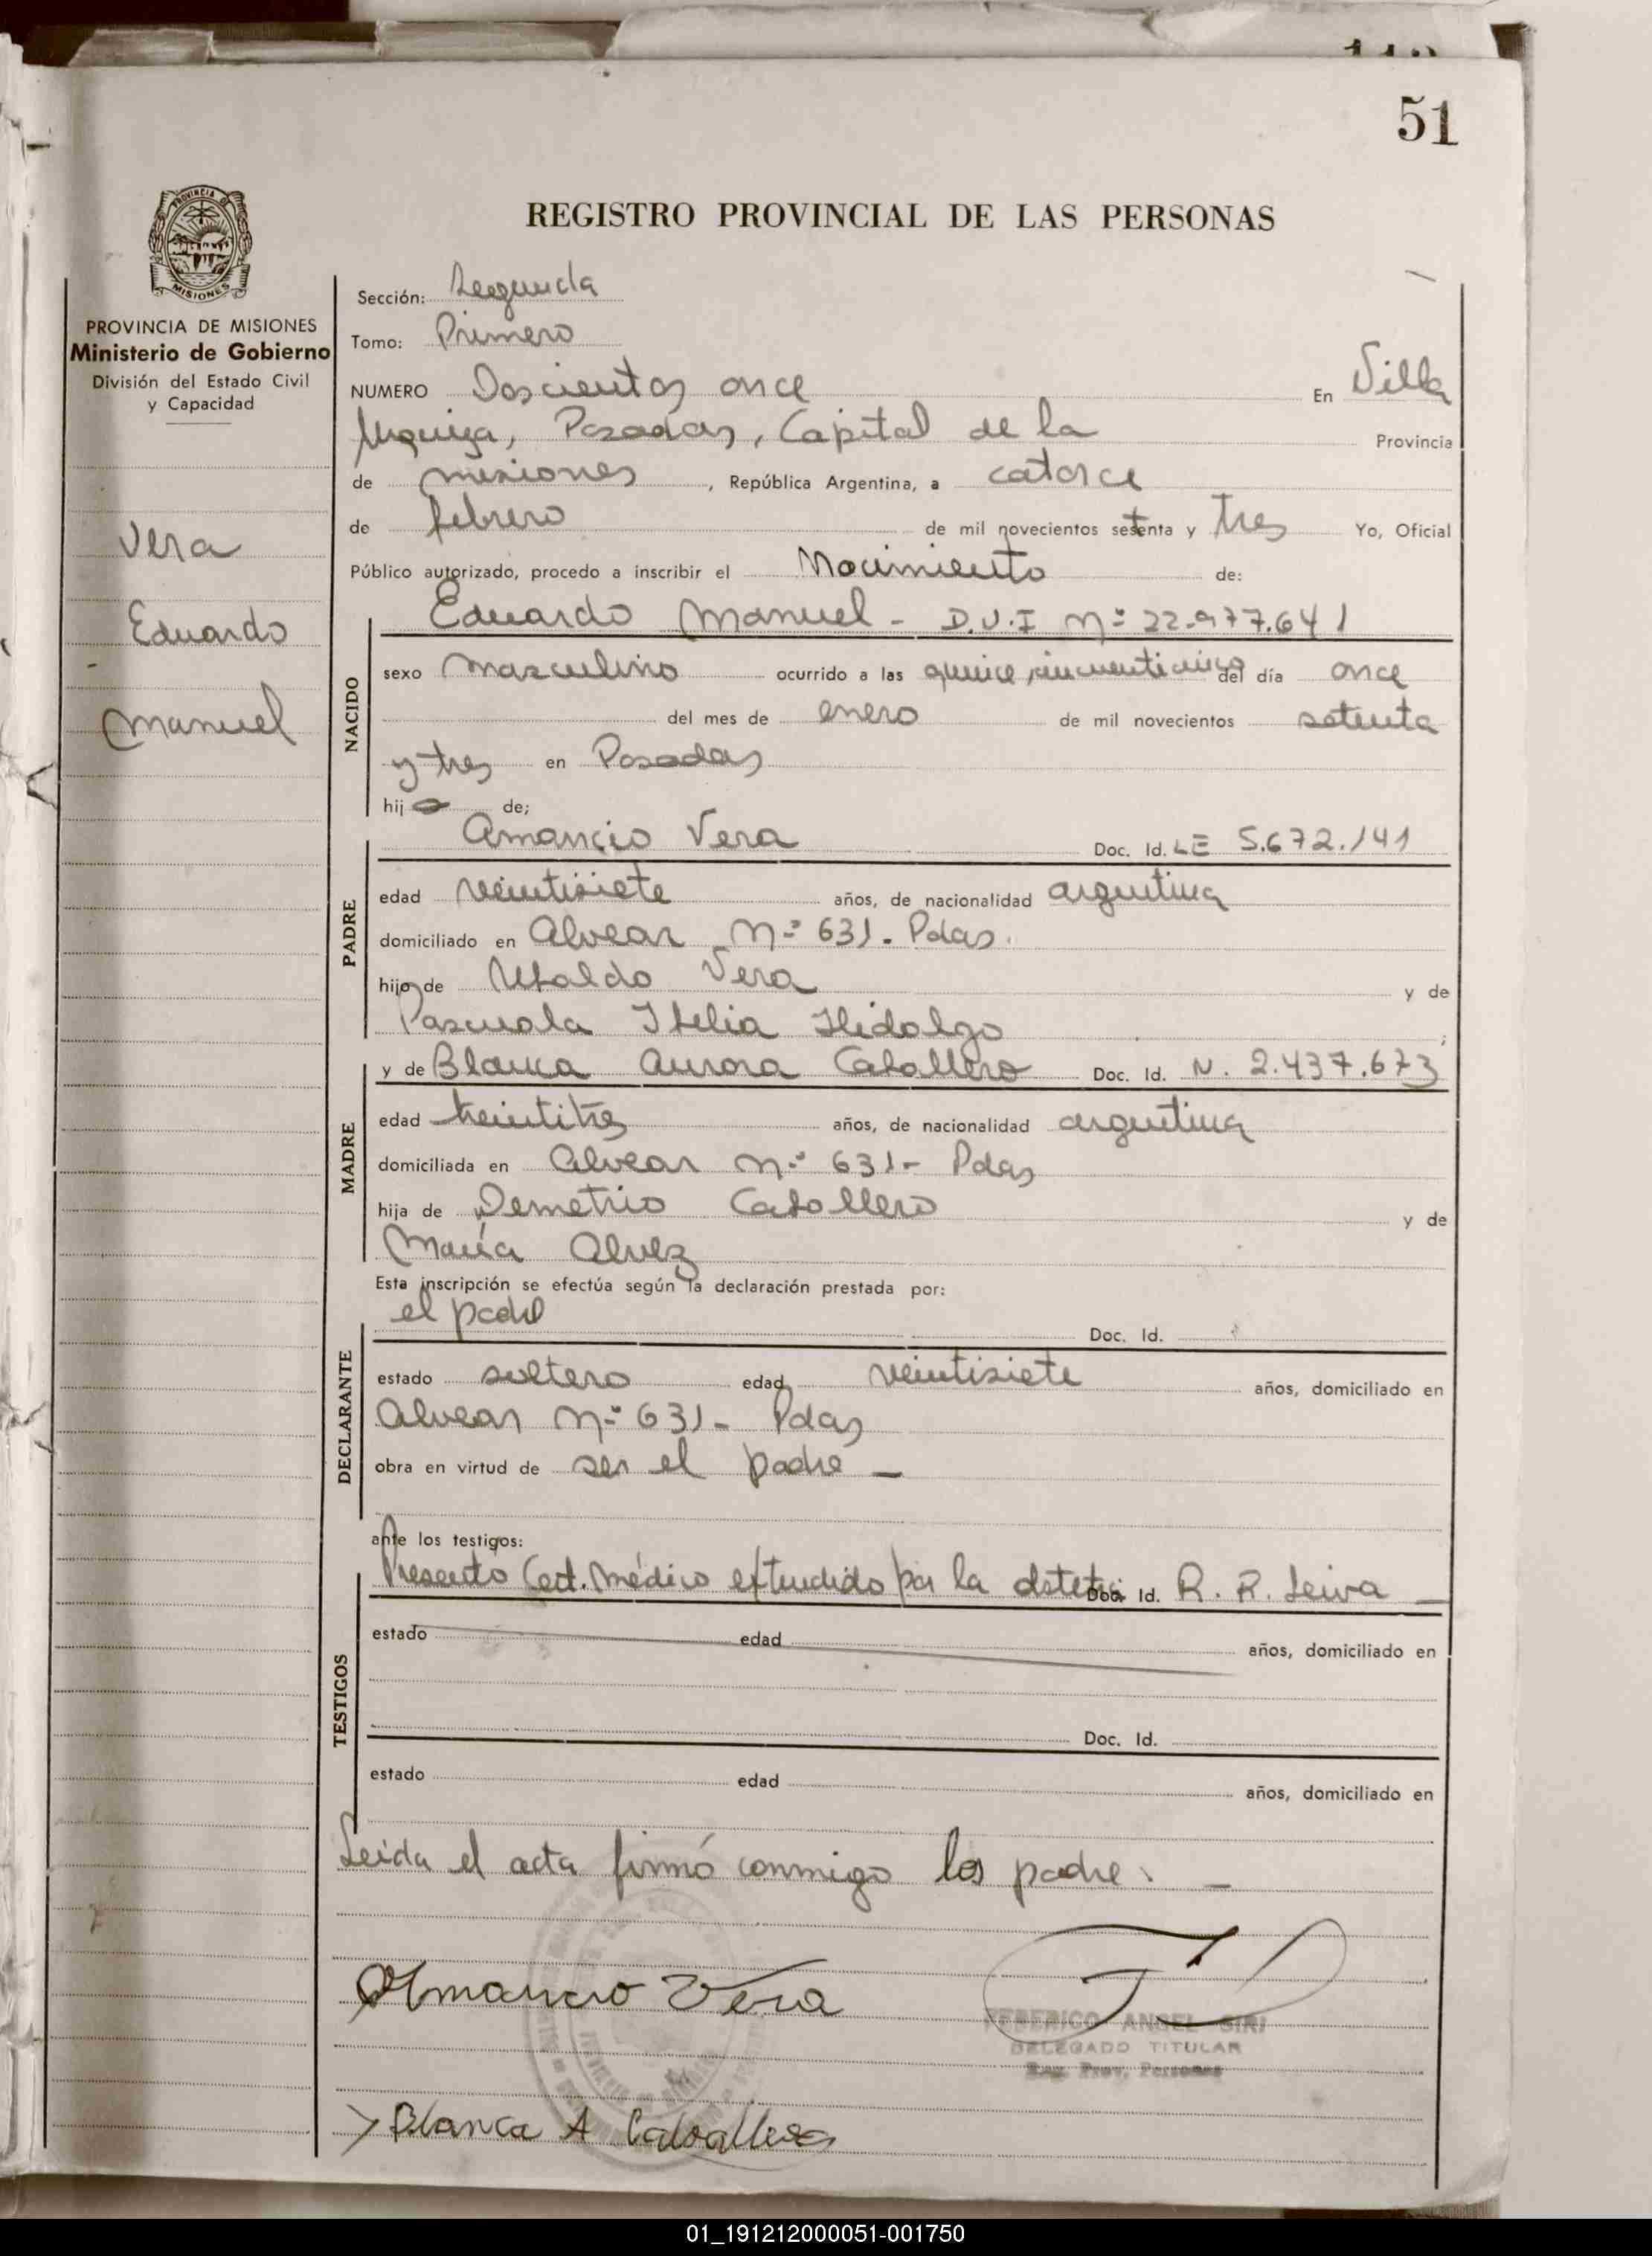 51
REGISTRO PROVINCIAL DE LAS PERSONAS
PROVINCIA DE MISIONES
Ministerio de Gobierno
División del Estado Civil
y Capacidad
Vera
Eduardo
Manuel
Sección: Segunda
Tomo: Primero
NUMERO Doscientos once En Villa
Urquiza, Posadas, Capital de la Provincia
de misiones, República Argentina, a catorce
de febrero de mil novecientos setenta y tres Yo, Oficial
Público autorizado, procedo a inscribir el Nacimiento de:
NACIDO
Eduardo Manuel - D.U.I Nº 22.977.641
sexo masculino ocurrido a las quince, cincuenticinco del día once
del mes de enero de mil novecientos setenta
y tres en Posadas
hijo de;
PADRE
Amancio Vera Doc. Id. LE 5.672.141
edad veintisiete años, de nacionalidad argentina
domiciliado en Alvear Nº 631. Pdas.
hijo de Ubaldo Vera y de
Pascuala Itelia Hidalgo;
MADRE
y de Blanca Aurora Caballero Doc. Id. N. 2.437.673
edad treintitres años, de nacionalidad argentina
domiciliada en Alvear Nº 631- Pdas
hija de Demetrio Caballero y de
María Alvez
Esta inscripción se efectúa según la declaración prestada por:
DECLARANTE
el padre Doc. Id.
estado soltero edad veintisiete años, domiciliado en
Alvear Nº 631- Pdas
obra en virtud de ser el padre -
ante los testigos:
TESTIGOS
Presentó Cert. Médico extendido por la obstetra Doc. Id. R. R. Leiva -
estado edad años, domiciliado en
Doc. Id.
estado edad años, domiciliado en
Leida el acta firmó conmigo los padre. -
Amancio Vera
FEDERICO ANGEL SIRI
DELEGADO TITULAR
Reg. Prov. Personas
Blanca A Caballero
01_191212000051-001750